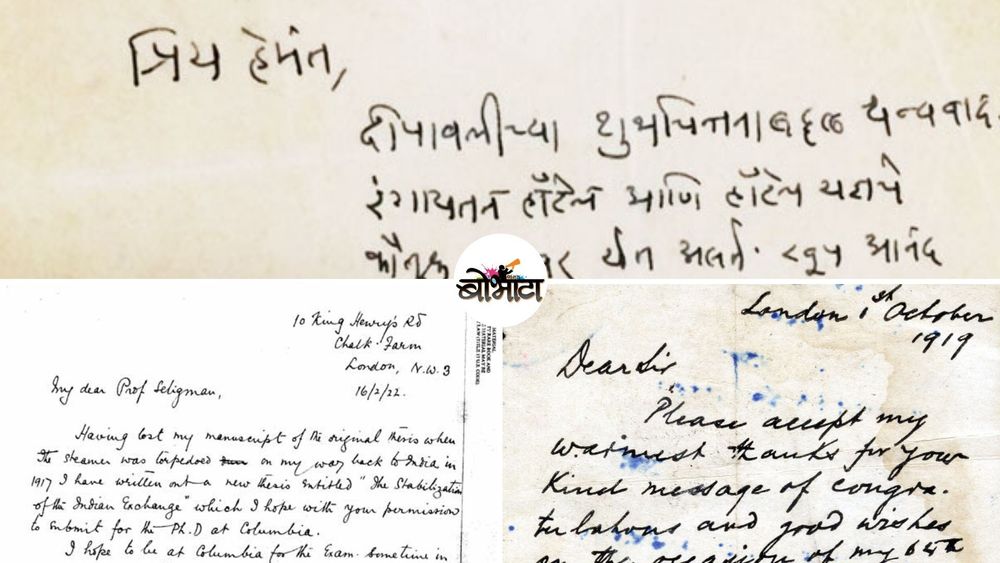 प्रिय हेमंत,
दीपावलीच्या शुभचिंतनाबद्दल धन्यवाद.
रंगायतन हॉटेल आणि हॉटेल
कौतुक येत असतं. खूप आनंद
बोभाटा
10 King Henry's Rd
Chalk Farm
London, N.W. 3
16/2/22.
My dear Prof Seligman,
Having lost my manuscript of the original thesis when
the steamer was torpedoed on my way back to India in
1917 I have written out a new thesis entitled "The Stabilization
of the Indian Exchange" which I hope with your permission
to submit for the Ph.D at Columbia.
I hope to be at Columbia for the Exam. Sometime in
London 1st October
1919
Dear Sir
Please accept my
warmest thanks for your
Kind message of congra-
tulations and good wishes
on the occasion of my 65th